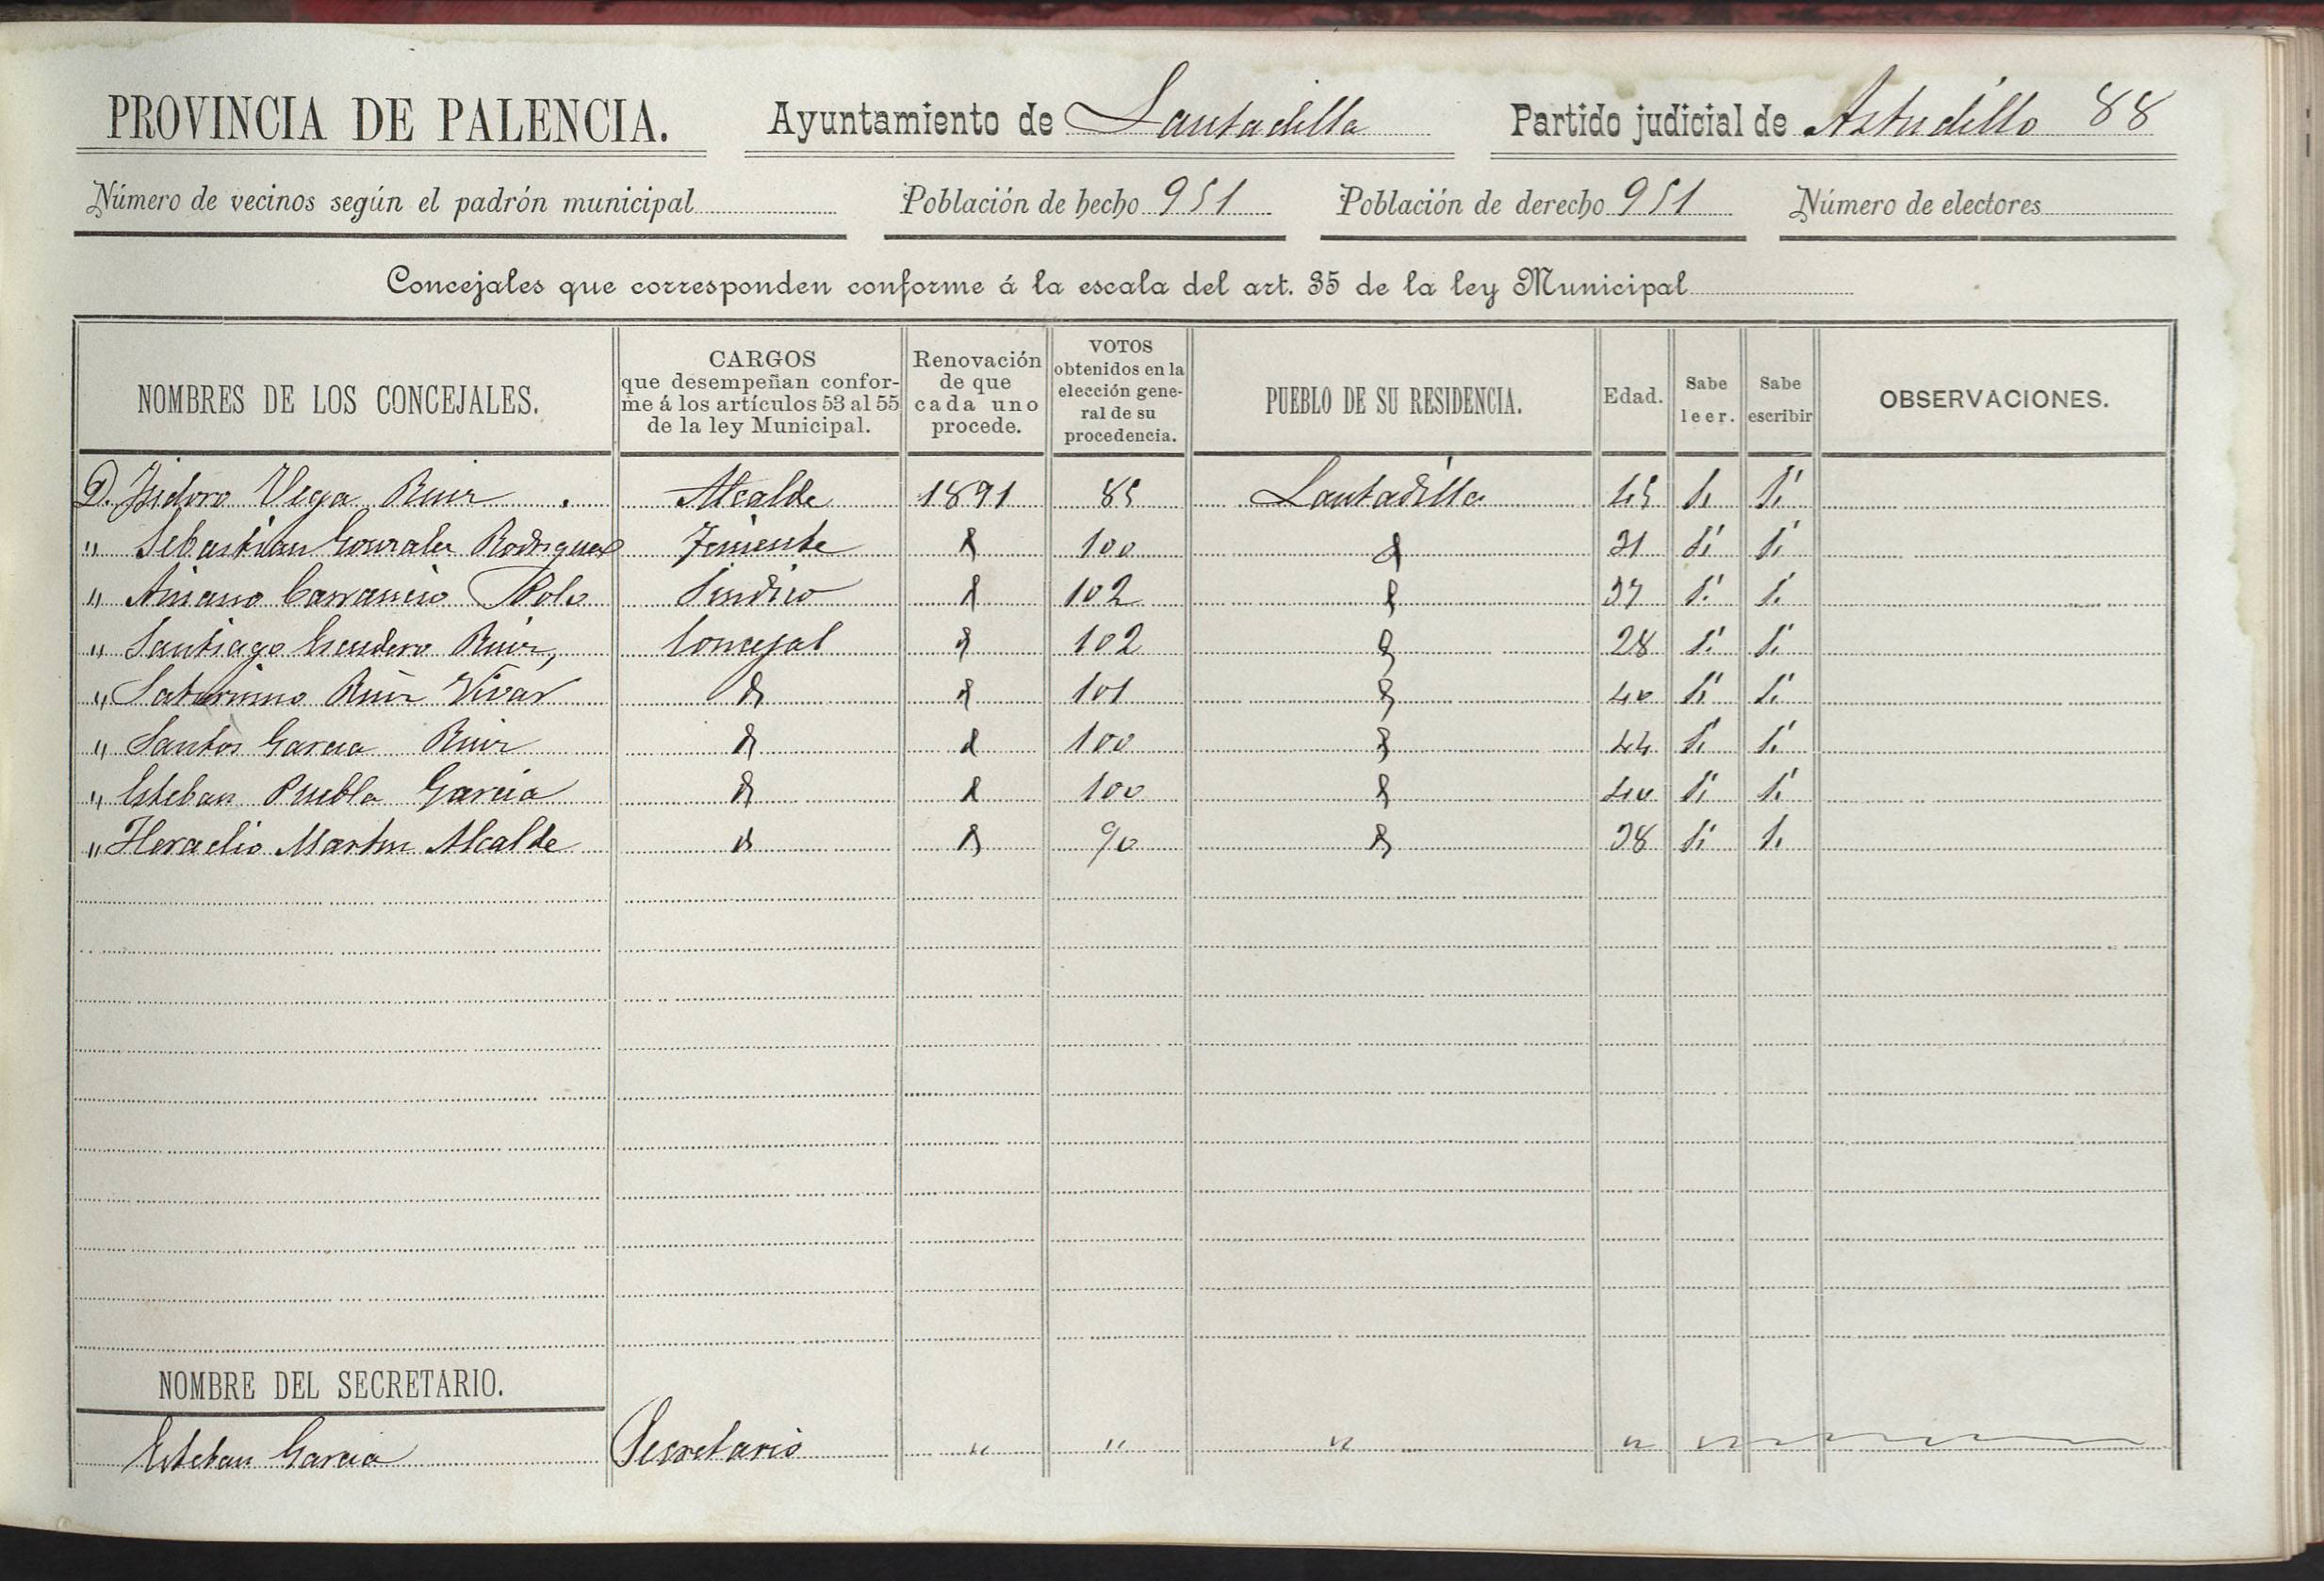 PROVINCIA DE PALENCIA. Ayuntamiento de Lantadilla Partido judicial de Astudillo 88
Número de vecinos según el padrón municipal Población de hecho 951 Población de derecho 951 Número de electores
Concejales que corresponden conforme á la escala del art. 35 de la ley Municipal
NOMBRES DE LOS CONCEJALES. CARGOS que desempeñan confor-me á los artículos 53 al 55 de la ley Municipal. Renovación de que cada uno procede. VOTOS obtenidos en la elección gene-ral de su procedencia. PUEBLO DE SU RESIDENCIA. Edad. Sabe leer. Sabe escribir OBSERVACIONES.
D. Isidoro Vega Ruiz Alcalde 1891 85 Lantadilla 45 Si Si
" Sebastian Gonzalez Rodriguez Teniente 100 31 Si Si
" Aniano Carrancio Polo Sindico 102 37 Si Si
" Santiago Escudero Ruiz, Concejal 102 28 Si Si
" Saturnino Ruiz Vivar 101 40 Si Si
" Santos Garcia Ruiz 100 44 Si Si
" Esteban Puebla Garcia 100 40 Si Si
" Heraclio Martin Alcalde 90 38 Si Si
NOMBRE DEL SECRETARIO.
Esteban Garcia Secretario " " " " "